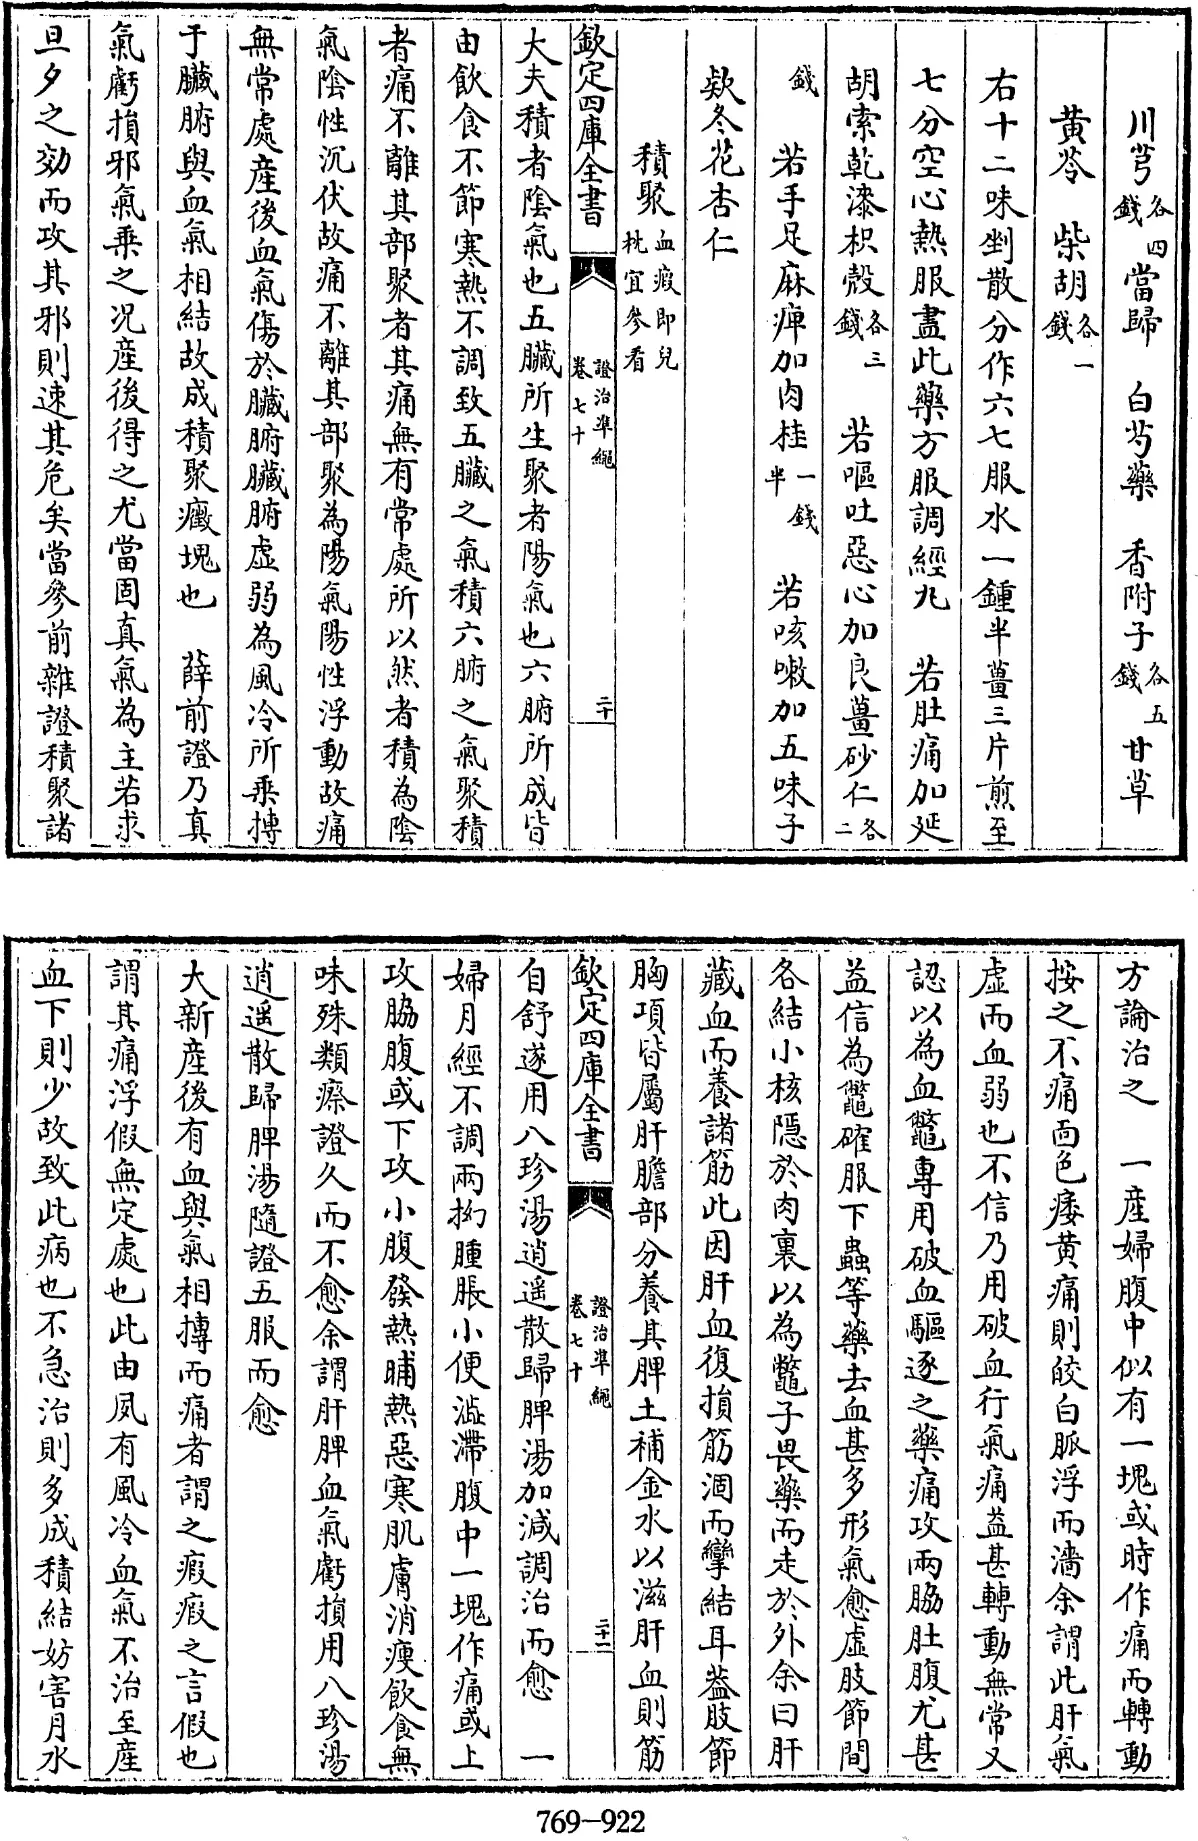 川芎各四錢當歸　白芍藥　香附子各五錢甘草
黃芩　柴胡各一錢
右十二味剉散分作六七服水一鍾半薑三片煎至
七分空心熱服盡此藥方服調經丸　若肚痛加延
胡索乾漆枳殼各三錢　若嘔吐惡心加良薑砂仁各二
錢　若手足麻痺加肉桂一錢半　若咳嗽加五味子
欵冬花杏仁
積聚血瘕即兒枕宜參看
欽定四庫全書　證治準繩卷七十　二十
大夫積者陰氣也五臟所生聚者陽氣也六腑所成皆
由飲食不節寒熱不調致五臟之氣積六腑之氣聚積
者痛不離其部聚者其痛無有常處所以然者積為陰
氣陰性沉伏故痛不離其部聚為陽氣陽性浮動故痛
無常處產後血氣傷於臟腑臟腑虛弱為風冷所乗搏
于臟腑與血氣相結故成積聚癥塊也　薛前證乃真
氣虧損邪氣乗之况產後得之尤當固真氣為主若求
旦夕之効而攻其邪則速其危矣當參前雜證積聚諸
方論治之　一產婦腹中似有一塊或時作痛而轉動
按之不痛面色痿黃痛則皎白脈浮而濇余謂此肝氣
虛而血弱也不信乃用破血行氣痛益甚轉動無常又
認以為血鼈專用破血驅逐之藥痛攻兩脇肚腹尤甚
益信為鼈確服下蟲等藥去血甚多形氣愈虛肢節間
各結小核隱於肉裏以為鼈子畏藥而走於外余曰肝
藏血而養諸筋此因肝血復損筋涸而攣結耳葢肢節
胸項皆屬肝膽部分養其脾土補金水以滋肝血則筋
欽定四庫全書　證治準繩卷七十　二十一
自舒遂用八珍湯逍遥散歸脾湯加減調治而愈　一
婦月經不調兩拗腫脹小便澁滯腹中一塊作痛或上
攻脇腹或下攻小腹發熱晡熱惡寒肌膚消瘦飲食無
味殊類瘵證久而不愈余謂肝脾血氣虧損用八珍湯
逍遥散歸脾湯隨證五服而愈
大新產後有血與氣相搏而痛者謂之瘕瘕之言假也
謂其痛浮假無定處也此由夙有風冷血氣不治至產
血下則少故致此病也不急治則多成積結妨害月水
769-922